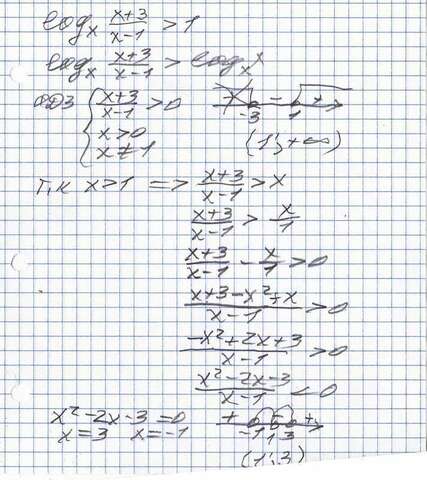 log_x (x+3)/(x-1) > 1
log_x (x+3)/(x-1) > log_x x
ОДЗ { (x+3)/(x-1) > 0
x > 0
x ≠ 1
+ - +
-3 1
(1; +∞)
т,к x > 1 => (x+3)/(x-1) > x
(x+3)/(x-1) > x/1
(x+3)/(x-1) - x/1 > 0
(x+3-x²+x)/(x-1) > 0
(-x²+2x+3)/(x-1) > 0
(x²-2x-3)/(x-1) < 0
x²-2x-3=0
x=3 x=-1
+ - +
-1 1 3
(1; 3)